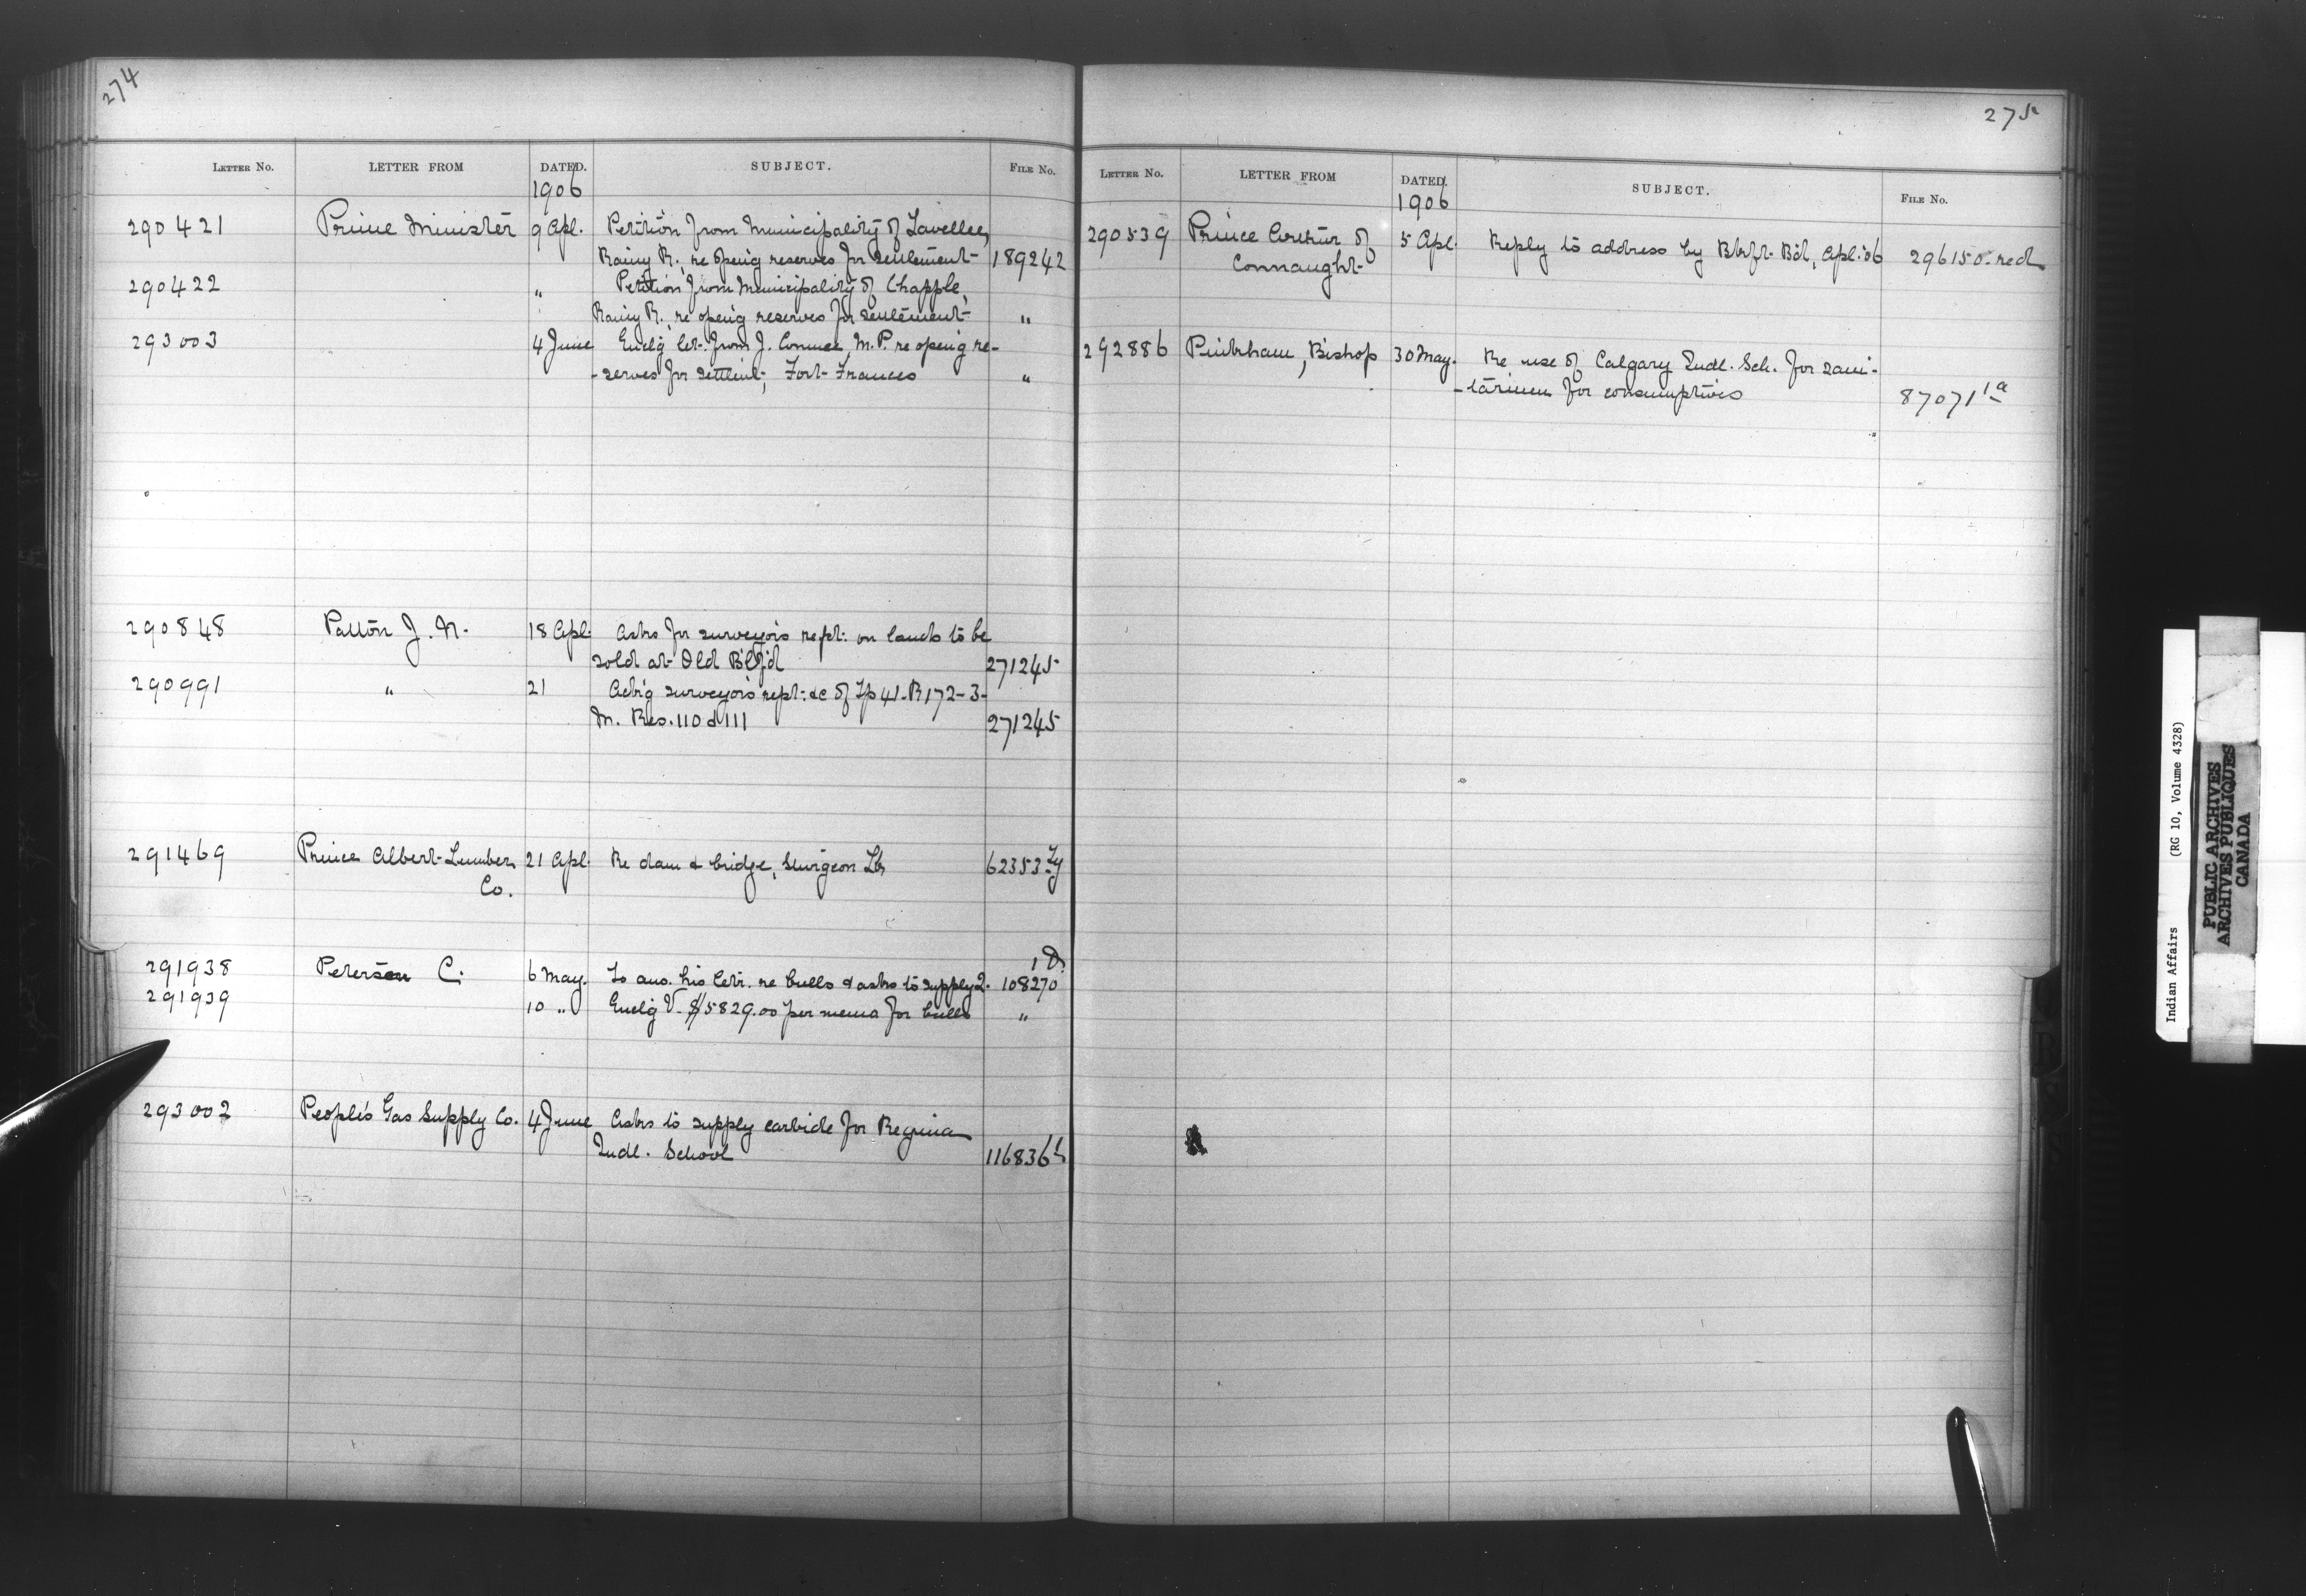 274
LETTER No. LETTER FROM DATED. SUBJECT. FILE No.
1906
290421 Prime Minister 9 Apl. Petition from Municipality of Lavellee,
Rainy R., re openg reserves for settlement 189242
290422 " Petition from Municipality of Chapple,
Rainy R., re openg reserves for settlement "
293003 4 June Enclg let. from J. Conmee, M.P. re openg re-
-serves for settlmt, Fort Frances "
290848 Patton J. N. 18 Apl. Asks for surveyors rept. on lands to be
sold at Old B'lf'd 271245
290991 " 21 Ack'g surveyors rept. &c of Tp 41-R172-3-
M. Res. 110 & 111 271245
291469 Prince Albert Lumber 21 Apl. Re dam & bridge, Sturgeon Lk 62353
Co.
291938 Peterson C. 6 May. To ans. his letr. re bulls & asks to supply 2. 108270
291939 10 " Enclg V. $5829.00 per memo for bulls "
293002 People's Gas Supply Co. 4 June Asks to supply carbide for Regina
Indl. School 116836
275
LETTER No. LETTER FROM DATED. SUBJECT. FILE No.
1906
290539 Prince Arthur of 5 Apl. Reply to address by Bkft. Bd, Apl. '06 296150 red
Connaught
292886 Pinkham, Bishop 30 May. Re use of Calgary Indl. Sch. for sani-
-tarium for consumptives 87071 1a
Indian Affairs (RG 10, Volume 4328)
PUBLIC ARCHIVES
ARCHIVES PUBLIQUES
CANADA